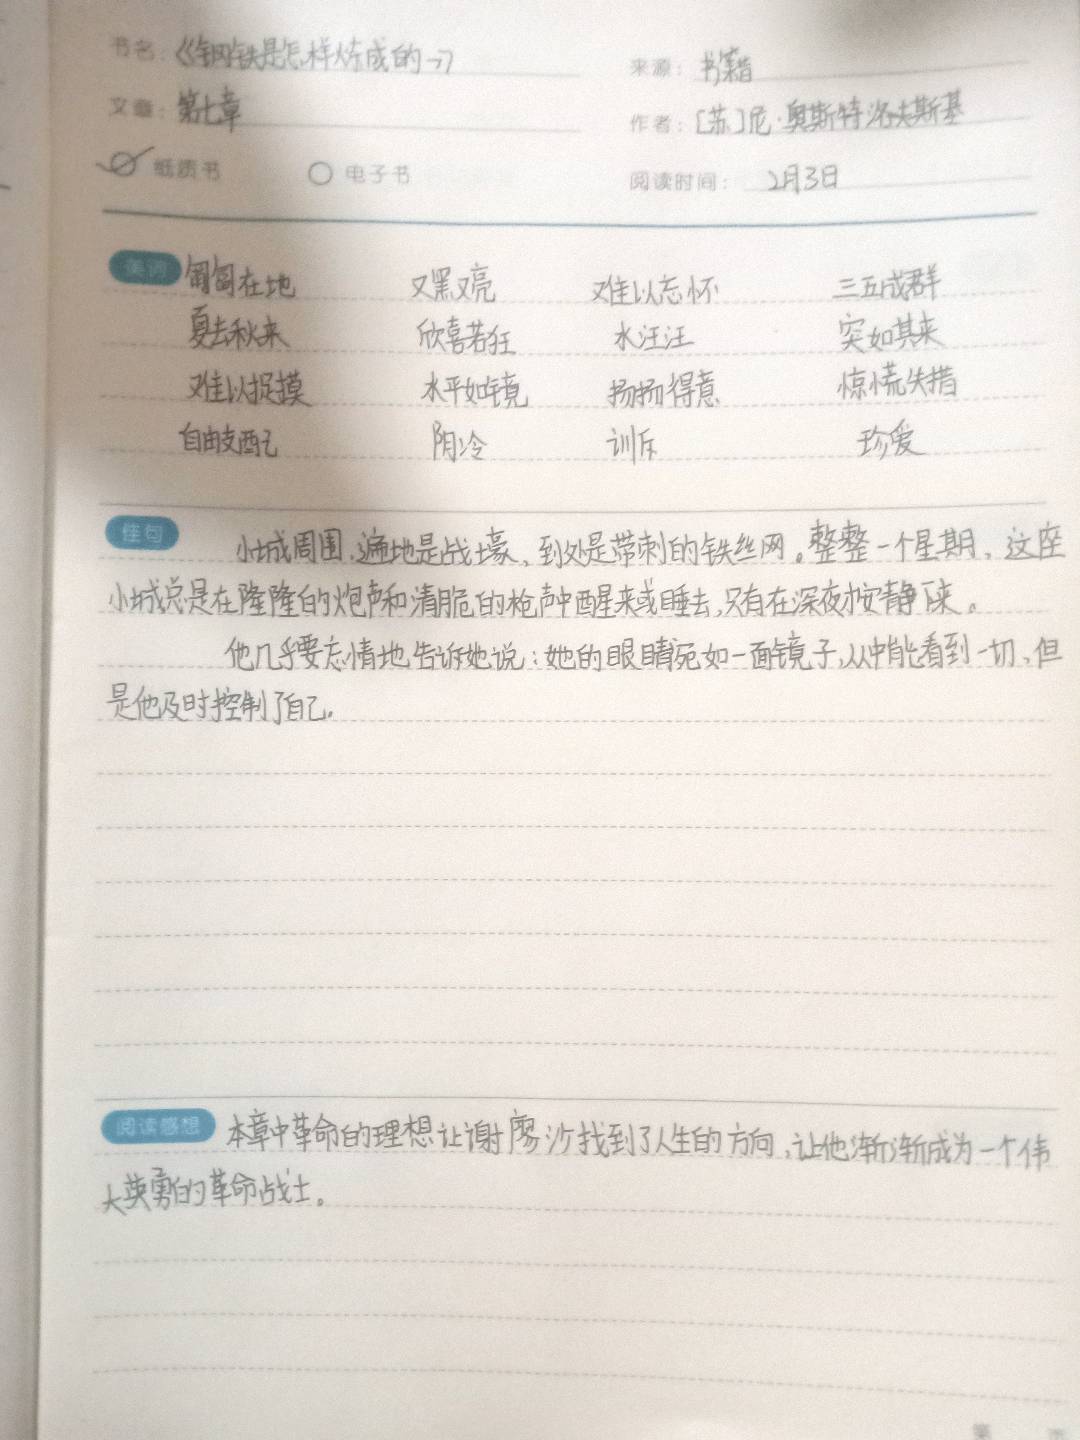 书名:《钢铁是怎样炼成的》 来源: 书籍
文章: 第七章 作者: [苏]尼·奥斯特洛夫斯基
纸质书 电子书 阅读时间: 2月3日
美词 匍匐在地 又黑又亮 难以忘怀 三五成群
夏去秋来 欣喜若狂 水汪汪 突如其来
难以捉摸 水平如镜 扬扬得意 惊慌失措
自由支配 阴冷 训斥 珍爱
佳句 小城周围,遍地是战壕,到处是带刺的铁丝网。整整一个星期,这座
小城总是在隆隆的炮声和清脆的枪声中醒来或睡去,只有在深夜才安静下来。
他几乎要忘情地告诉她说:她的眼睛宛如一面镜子,从中能看到一切,但
是他及时控制了自己.
阅读感想 本章中革命的理想让谢廖沙找到了人生的方向,让他渐渐成为一个伟
大英勇的革命战士。
第 页